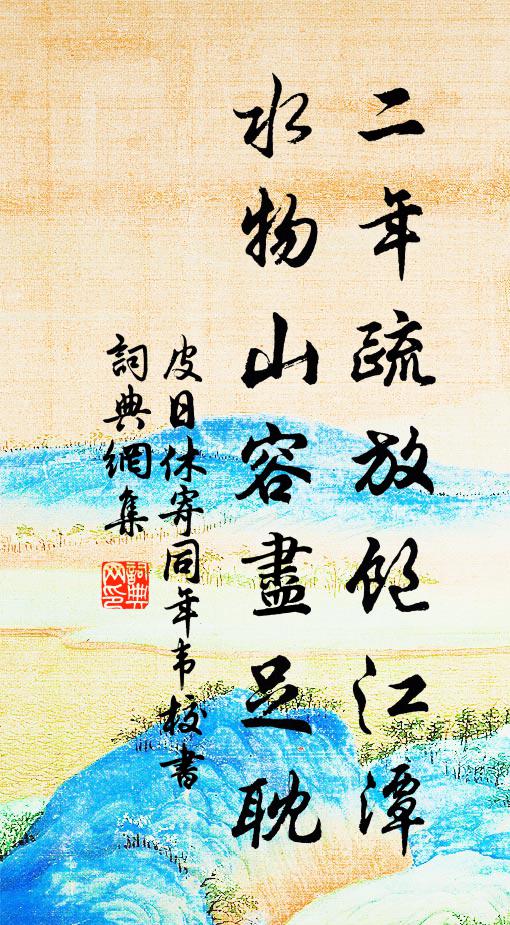 二年疏放飽江潭
水物山容盡足耽
皮日休寄同年韋校書
詞典網集
詞典网印